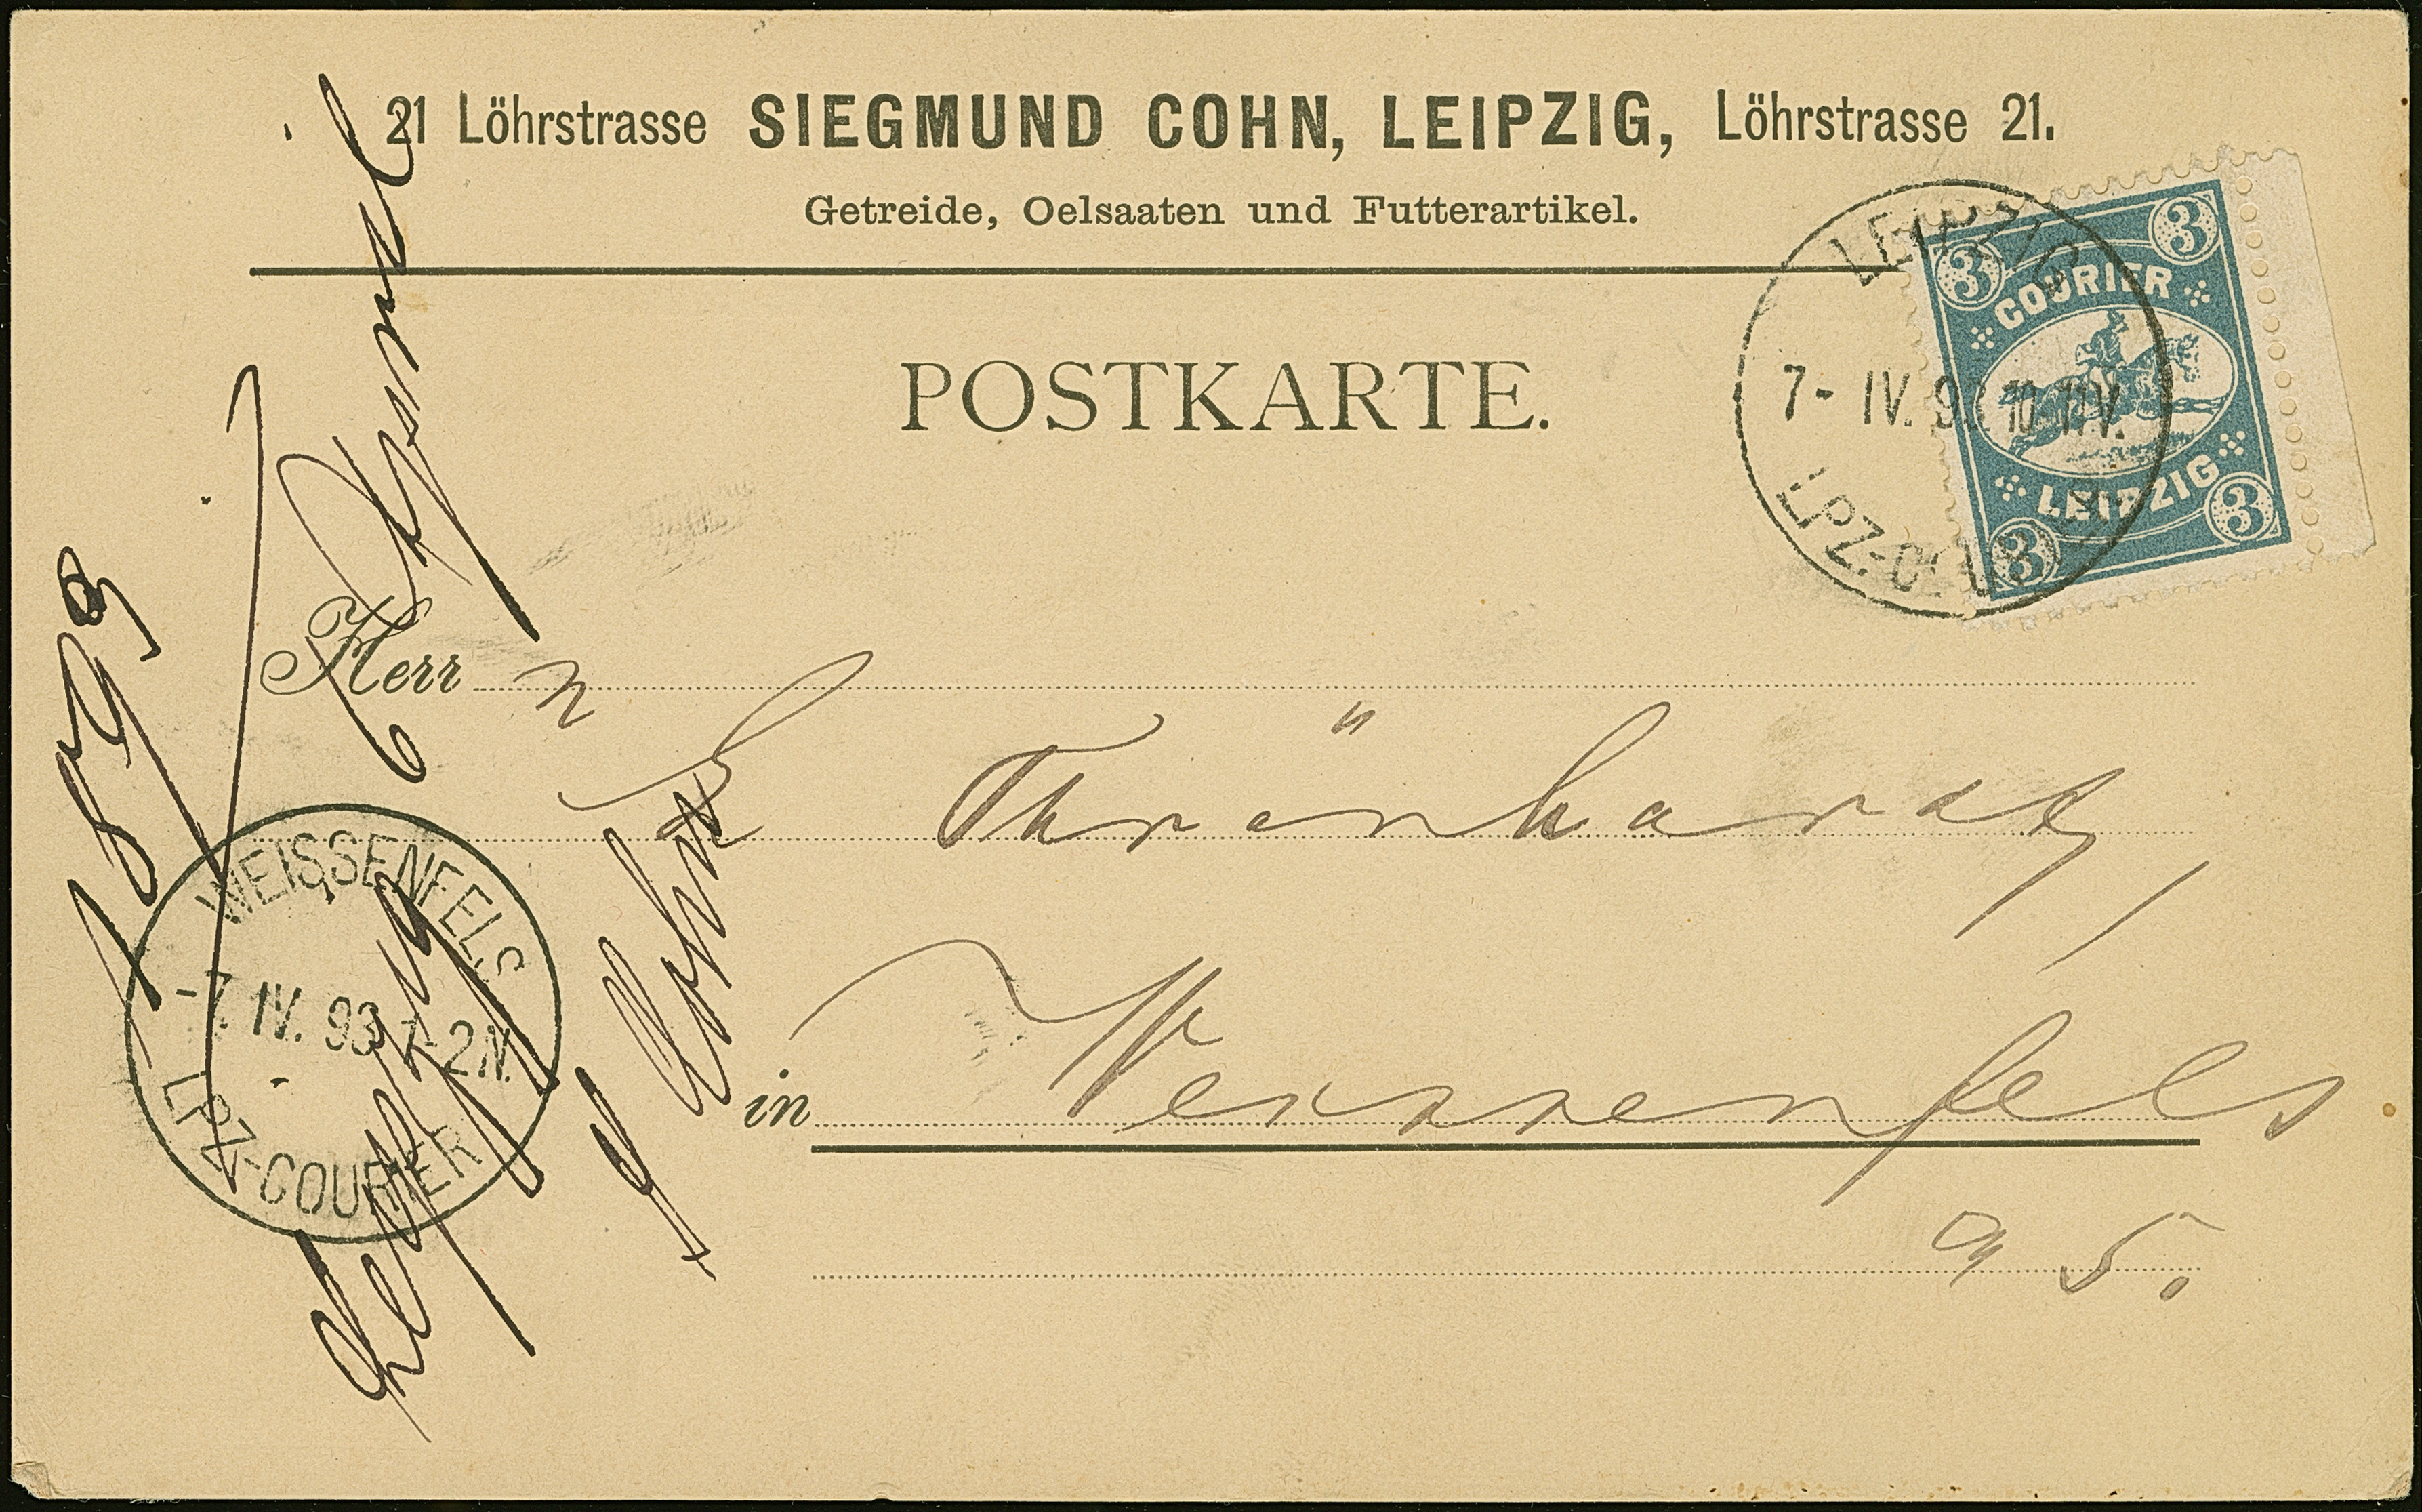 21 Löhrstrasse SIEGMUND COHN, LEIPZIG, Löhrstrasse 21.
Getreide, Oelsaaten und Futterartikel.
POSTKARTE.
3 3
COURIER
LEIPZIG
3 3
LEIPZIG
7- IV. 9 10-11V.
LPZ.-COU
Herr n
Thränhardt,
in Weissenfels
a S.
WEISSENFELS
-7. IV. 93 1-2N.
LPZ.-COURIER
1893
6 April
Leipzig
S Cohn